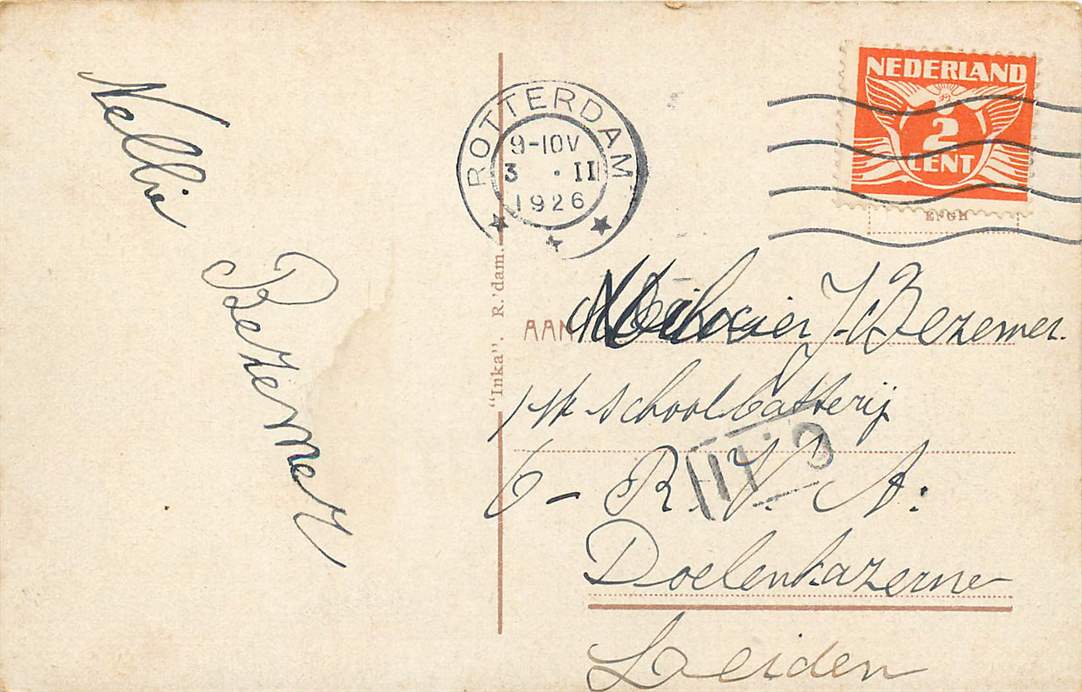 Nellie
Bezemer
ROTTERDAM
9-10V
3 · II
1926
NEDERLAND
½ CENT
"Inka". R.'dam.
AAN
J. Bezemer
schoolbatterij
6 - R. V. A.
Doelenkazerne
Leiden